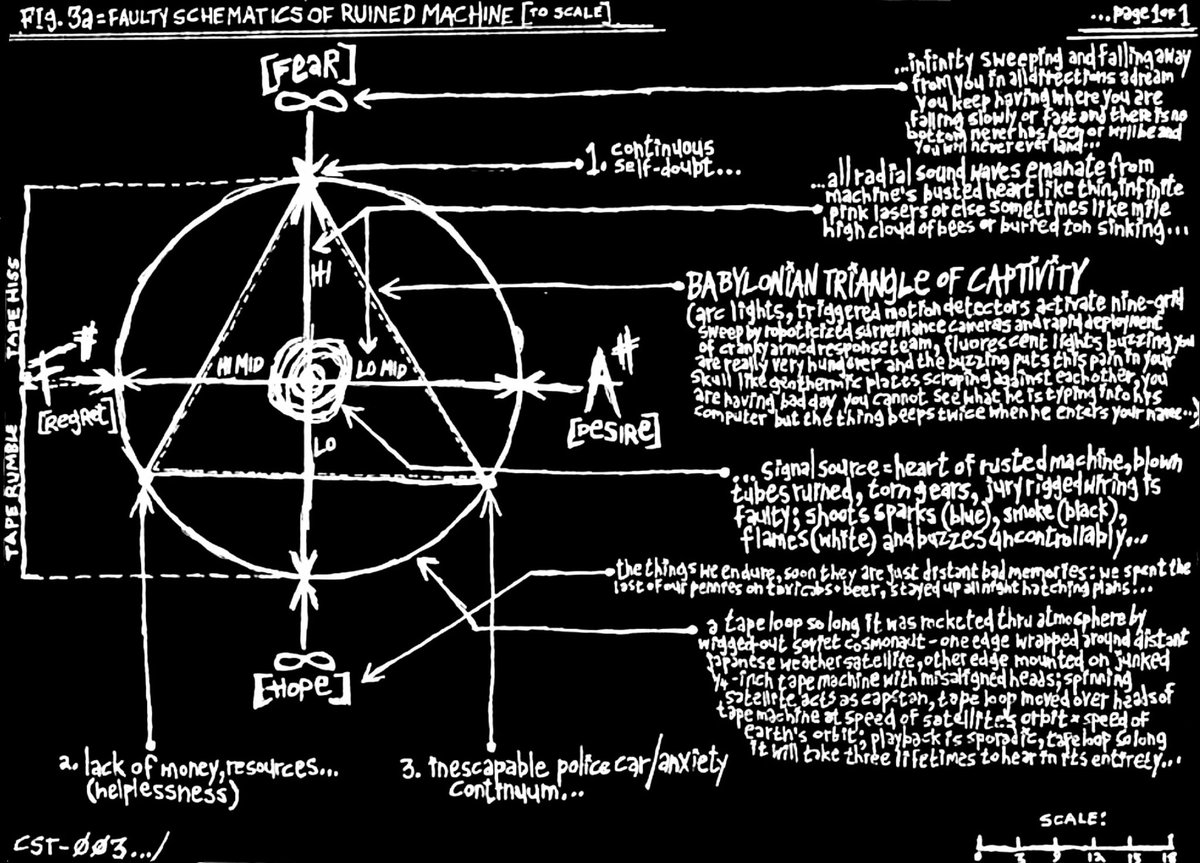 FIG. 3a = FAULTY SCHEMATICS OF RUINED MACHINE [TO SCALE]
...page 1 of 1
[FeaR]
∞
...infinity sweeping and falling away
from you in all directions a dream
you keep having where you are
falling slowly or fast and there is no
bottom never has been or will be and
you will never ever land...
1. continuous
self-doubt...
...all radial sound waves emanate from
machine's busted heart like thin, infinite
pink lasers or else sometimes like mile
high cloud of bees or buried ton sinking...
HI
BABYLONIAN TRIANGLE OF CAPTIVITY
(arc lights, triggered motion detectors activate nine-grid
sweep by roboticized surveillance cameras and rapid deployment
of cranky armed response team, fluorescent lights buzzing you
are really very hungover and the buzzing puts this pain in your
skull like geothermic plates scraping against each other, you
are having bad day you cannot see what he is typing into his
computer but the thing beeps twice when he enters your name...)
TAPE HISS
F#
[RegRet]
HI MID
LO MID
A#
[DESIRE]
LO
TAPE RUMBLE
... signal source = heart of rusted machine, blown
tubes ruined, torn gears, jury rigged wiring is
faulty; shoots sparks (blue), smoke (black),
flames (white) and buzzes uncontrollably...
the things we endure, soon they are just distant bad memories: we spent the
last of our pennies on taxicabs + beer, stayed up all night hatching plans...
a tape loop so long it was rocketed thru atmosphere by
wigged-out soviet cosmonaut - one edge wrapped around distant
japanese weather satellite, other edge mounted on junked
1/4-inch tape machine with misaligned heads; spinning
satellite acts as capstan, tape loop moved over heads of
tape machine at speed of satellite's orbit × speed of
earth's orbit; playback is sporadic, tape loop so long
it will take three lifetimes to hear in its entirety...
∞
[Hope]
2. lack of money, resources...
(helplessness)
3. inescapable police car/anxiety
continuum...
CST-ØØ3.../
SCALE:
0 3 9 12 15 18